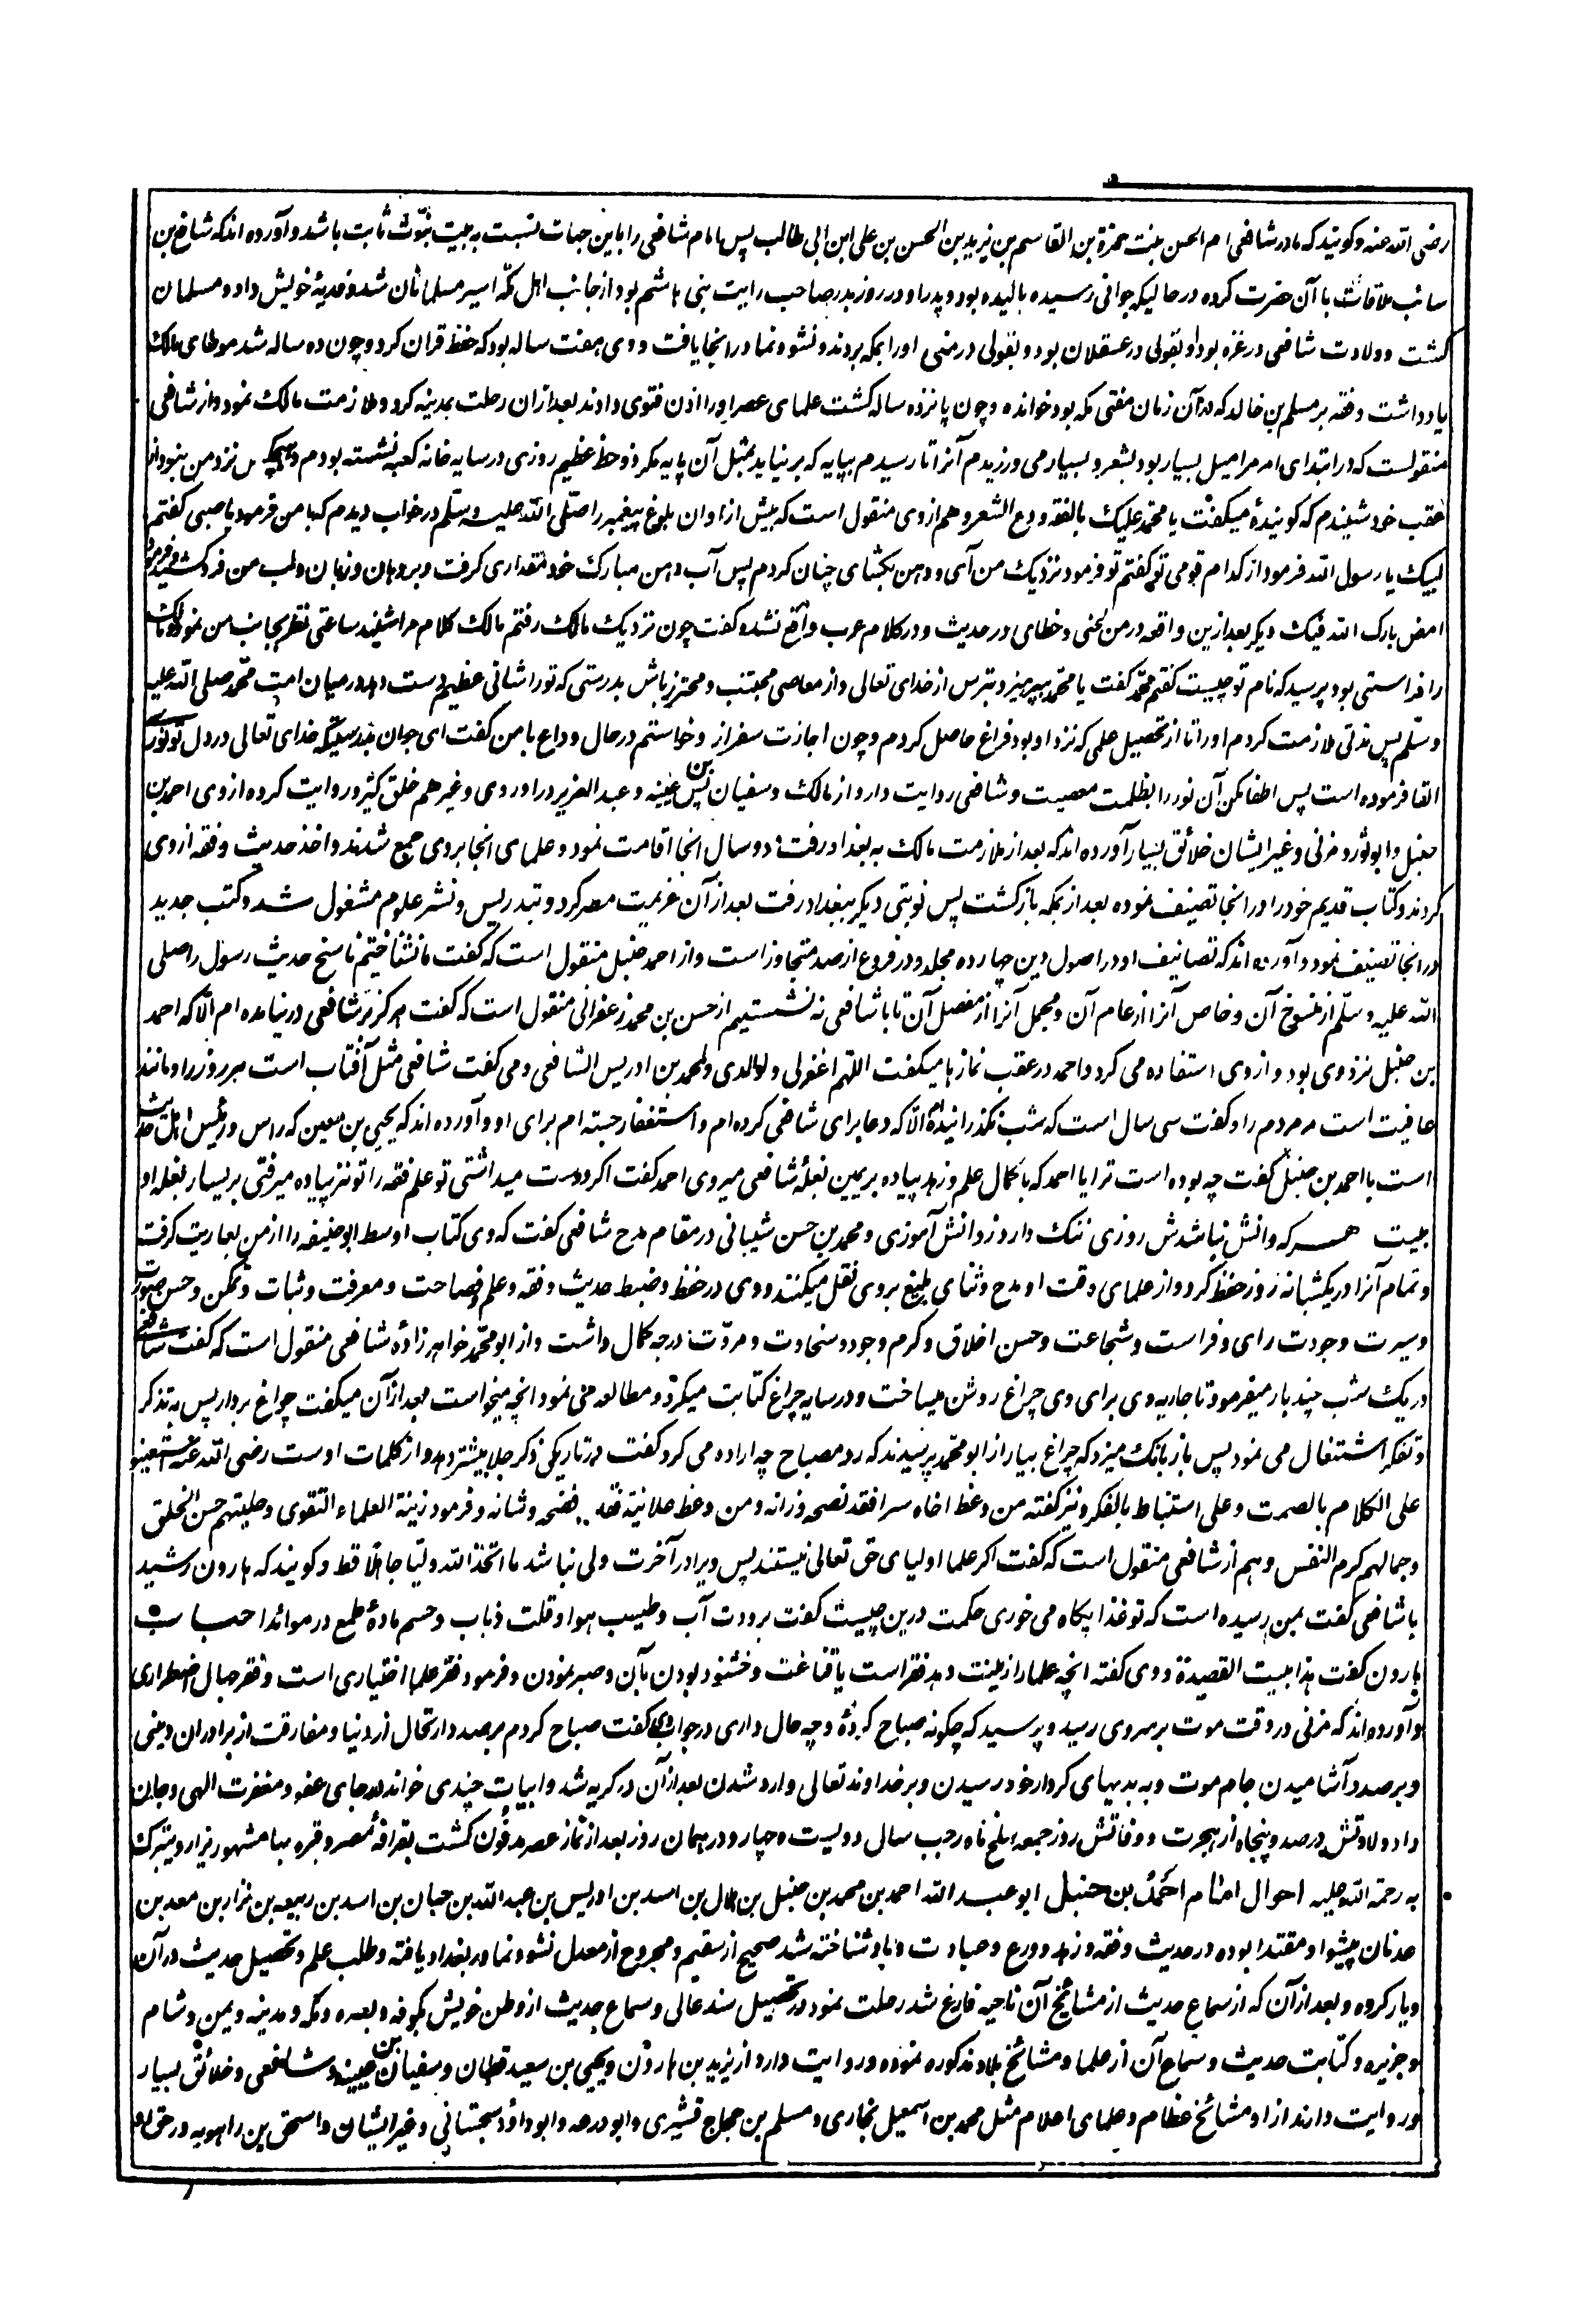 رضی الله عنه و کویند که مادر شافعی ام الحسن بنت حمزة بن القاسم بن یزید بن الحسن بن علی ابن ابی طالب پس امام شافعی را باین جهات نسبت به بیت نبوت ثابت باشد و آورده اند که شافع بن
سائب ملاقات با آن حضرت کرده در حالیکه جوانی رسیده بالیده بود و پدر او در روز بدر صاحب رایت بنی هاشم بود از جانب اهل مکه اسیر مسلمانان شد و فدیهٔ خویش داد و مسلمان
کشت و ولادت شافعی در غزه بود و بقولی در عسقلان بود و بقولی در منی او را بمکه بردند و نشو و نما در انجا یافت و وی هفت ساله بود که حفظ قران کرد و چون ده ساله شد موطای مالک
یاد داشت و فقه بر مسلم بن خالد که در آن زمان مفتی مکه بود خوانده و چون پانزده ساله کشت علمای عصر او را اذن فتوی دادند بعد ازان رحلت بمدینه کرد و ملازمت مالک نمود و از شافعی
منقولست که در ابتدای امر مرا میل بسیار بود بشعر و بسیار می ورزیدم آنرا تا رسیدم بپایه که بر نیاید بمثل آن پایه مکر ذو حظ عظیم روزی در سایه خانه کعبه نشسته بودم و هیچکس نزد من نبود از
عقب خود شنیدم که کویندهٔ میکفت یا محمد علیک بالفقه و دع الشعر و هم از وی منقول است که پیش از اوان بلوغ پیغمبر را صلی الله علیه و سلم در خواب دیدم که با من فرمود یا صبی کفتم
لبیک یا رسول الله فرمود از کدام قومی تو کفتم تو فرمود نزدیک من آی و دهن بکشای چنان کردم پس آب دهن مبارک خود مقداری کرفت و بر دهان و زبان و لب من فرو کشید و فرمود
امض بارک الله فیک دیکر بعد ازین واقعه در من لحنی و خطای در حدیث و در کلام عرب واقع نشد و کفت چون نزدیک مالک رفتم مالک کلام مرا شنید ساعتی نظر بجانب من نمود و مالک
را فراستی بود پرسید که نام تو چیست کفتم محمد کفت یا محمد بپرهیز و بترس از خدای تعالی و از معاصی مجتنب و محترز باش بدرستی که تو را شانی عظیم دست دهد در میان امت محمد صلی الله علیه
و سلم پس مدتی ملازمت کردم او را تا از تحصیل علمی که نزد او بود فراغ حاصل کردم و چون اجازت سفر از و خواستم در حال وداع با من کفت ای جوان بدرستیکه خدای تعالی در دل تو نور
القا فرموده است پس اطفا مکن آن نور را بظلمت معصیت و شافعی روایت دارد از مالک و سفیان بن عیینه و عبد العزیز دراوردی و غیرهم خلق کثیر و روایت کرده از وی احمد بن
حنبل و ابو ثور و مزنی و غیر ایشان خلائق بسیار آورده اند که بعد از ملازمت مالک به بغداد رفت دو سال انجا اقامت نمود و علمای انجا بروی جمع شدند و اخذ حدیث و فقه از وی
کردند و کتاب قدیم خود را در انجا تصنیف نموده بعد از بمکه بازکشت پس نوبتی دیکر ببغداد رفت بعد از آن عزیمت مصر کرد و بتدریس و نشر علوم مشغول شد و کتب جدید
در انجا تصنیف نمود و آورده اند که تصانیف او در اصول دین چهارده مجلد و در فروع از صد متجاوز است و از احمد حنبل منقول است که کفت ما نشناختیم ناسخ حدیث رسول را صلی
الله علیه و سلم از منسوخ آن و خاص آنرا از عام آن و مجمل آنرا از مفصل آن تا با شافعی نه نشستیم از حسن بن محمد زعفرانی منقول است که کفت هرکز بر شافعی در نیامده ام الا که احمد
بن حنبل نزد وی بود و از وی استفاده می کرد و احمد در عقب نمازها میکفت اللهم اغفر لی و لوالدی و لمحمد بن ادریس الشافعی و می کفت شافعی مثل آفتاب است مر روز را و مانند
عافیت است مر مردم را و کفت سی سال است که شب نکذرانیده ام الا که دعا برای شافعی کرده ام و استغفار جسته ام برای او و آورده اند که یحیی بن معین که راس و رئیس اهل حدیث
است با احمد بن حنبل کفت چه بوده است ترا یا احمد که با کمال علم و زهد پیاده بر یمین بغلهٔ شافعی میروی احمد کفت اکر دوست میداشتی تو علم فقه را تو نیز پیاده میرفتی بر یسار بغله او
بیت هر که دانش نباشدش روزی ننک دارد ز دانش آموزی و محمد بن حسن شیبانی در مقام مدح شافعی کفت که وی کتاب اوسط ابو حنیفه را از من بعاریت کرفت
و تمام آنرا در یکشبانه روز حفظ کرد و از علمای وقت او مدح و ثنای بلیغ بر وی نقل میکنند و وی در حفظ و ضبط حدیث و فقه و علم و فصاحت و معرفت و ثبات و تمکن و حسن صورت
و سیرت و جودت رای و فراست و شجاعت و حسن اخلاق و کرم و جود و سخاوت و مروت درجه کمال داشت و از ابو محمد خواهرزادهٔ شافعی منقول است که کفت شافعی
در یک شب چند بار میفرمود تا جاریه وی برای وی چراغ روشن میساخت و در سایه چراغ کتابت میکرد و مطالعه می نمود انچه میخواست بعد از آن میکفت چراغ بردار پس به تذکر
و تفکر اشتغال می نمود پس باز بانک میزد که چراغ بیار از ابو محمد پرسیدند که رد مصباح چه اراده می کرد کفت در تاریکی ذکر جلا بیشتر دهد و از کلمات اوست رضی الله عنه استعینوا
علی الکلام بالصمت و علی استنباط بالفکر و نیز کفته من وعظ اخاه سرا فقد نصحه و زانه و من وعظ علانیة فقد فضحه و شانه و فرمود زینة العلماء التقوی و حلیتهم حسن الخلق
و جمالهم کرم النفس و هم از شافعی منقول است که کفت اکر علما اولیای حق تعالی نیستند پس ویرا در آخرت ولی نباشد ما اتخذ الله ولیا جاهلا قط و کویند که هارون رشید
با شافعی کفت بمن رسیده است که تو غذا پکاه می خوری حکمت درین چیست کفت برودت آب و طیب هوا و قلت ذباب و حسم مادهٔ طمع در موائد احباب
هارون کفت هذا بیت القصیدة و وی کفته انچه علما را زینت دهد فقر است با قناعت و خشنود بودن بآن و صبر نمودن و فرمود فقر علما اختیاری است و فقر جهال اضطراری
و آورده اند که مزنی در وقت موت بر سر وی رسید و پرسید که چکونه صباح کردهٔ و چه حال داری در جواب وی کفت صباح کردم بر صدد ارتحال از دنیا و مفارقت از برادران دینی
و بر صدد آشامیدن جام موت و به بدیهای کردار خود رسیدن و بر خداوند تعالی وارد شدن بعد از آن در کریه شد و ابیات چندی خواند در جای عفو و مغفرت الهی و جان
داد ولادتش در صد و پنجاه از هجرت و وفاتش روز جمعه سلخ ماه رجب سال دویست و چهار و در همان روز بعد از نماز عصر مدفون کشت بقرافهٔ مصر و قبره بها مشهور یزار و یتبرک
به رحمة الله علیه احوال امام احمد بن حنبل ابو عبد الله احمد بن محمد بن حنبل بن هلال بن اسد بن ادریس بن عبد الله بن حیان بن اسد بن ربیعه بن نزار بن معد بن
عدنان پیشوا و مقتدا بوده در حدیث و فقه و زهد و ورع و عبادت و باو شناخته شد صحیح از سقیم و مجروح از معدل نشو و نما در بغداد یافته و طلب علم و تحصیل حدیث در آن
دیار کرده و بعد از آن که از سماع حدیث از مشائخ آن ناحیه فارغ شد رحلت نمود در تحصیل سند عالی و سماع حدیث از وطن خویش بکوفه و بصره و مکه و مدینه و یمن و شام
و جزیره و کتابت حدیث و سماع آن از علما و مشائخ بلاد مذکوره نموده و روایت دارد از یزید بن هارون و یحیی بن سعید قطان و سفیان بن عیینه و شافعی و خلائق بسیار
و روایت دارند از او مشائخ عظام و علمای اعلام مثل محمد بن اسمعیل بخاری و مسلم بن حجاج قشیری و ابو زرعه و ابو داؤد سجستانی و غیر ایشان و اسحق بن راهویه در حق او